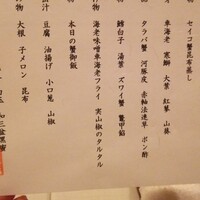 セイコ蟹昆布蒸し
車海老 寒鰤 大葉 紅蓼 山葵
タラバ蟹 河豚皮 赤軸法連草 ポン酢
鱈白子 湯葉 ズワイ蟹 鼈甲餡
海老味噌車海老フライ 実山椒のタルタル
本日の蟹御飯
豆腐 油揚げ 小口葱 山椒
大根 子メロン 昆布